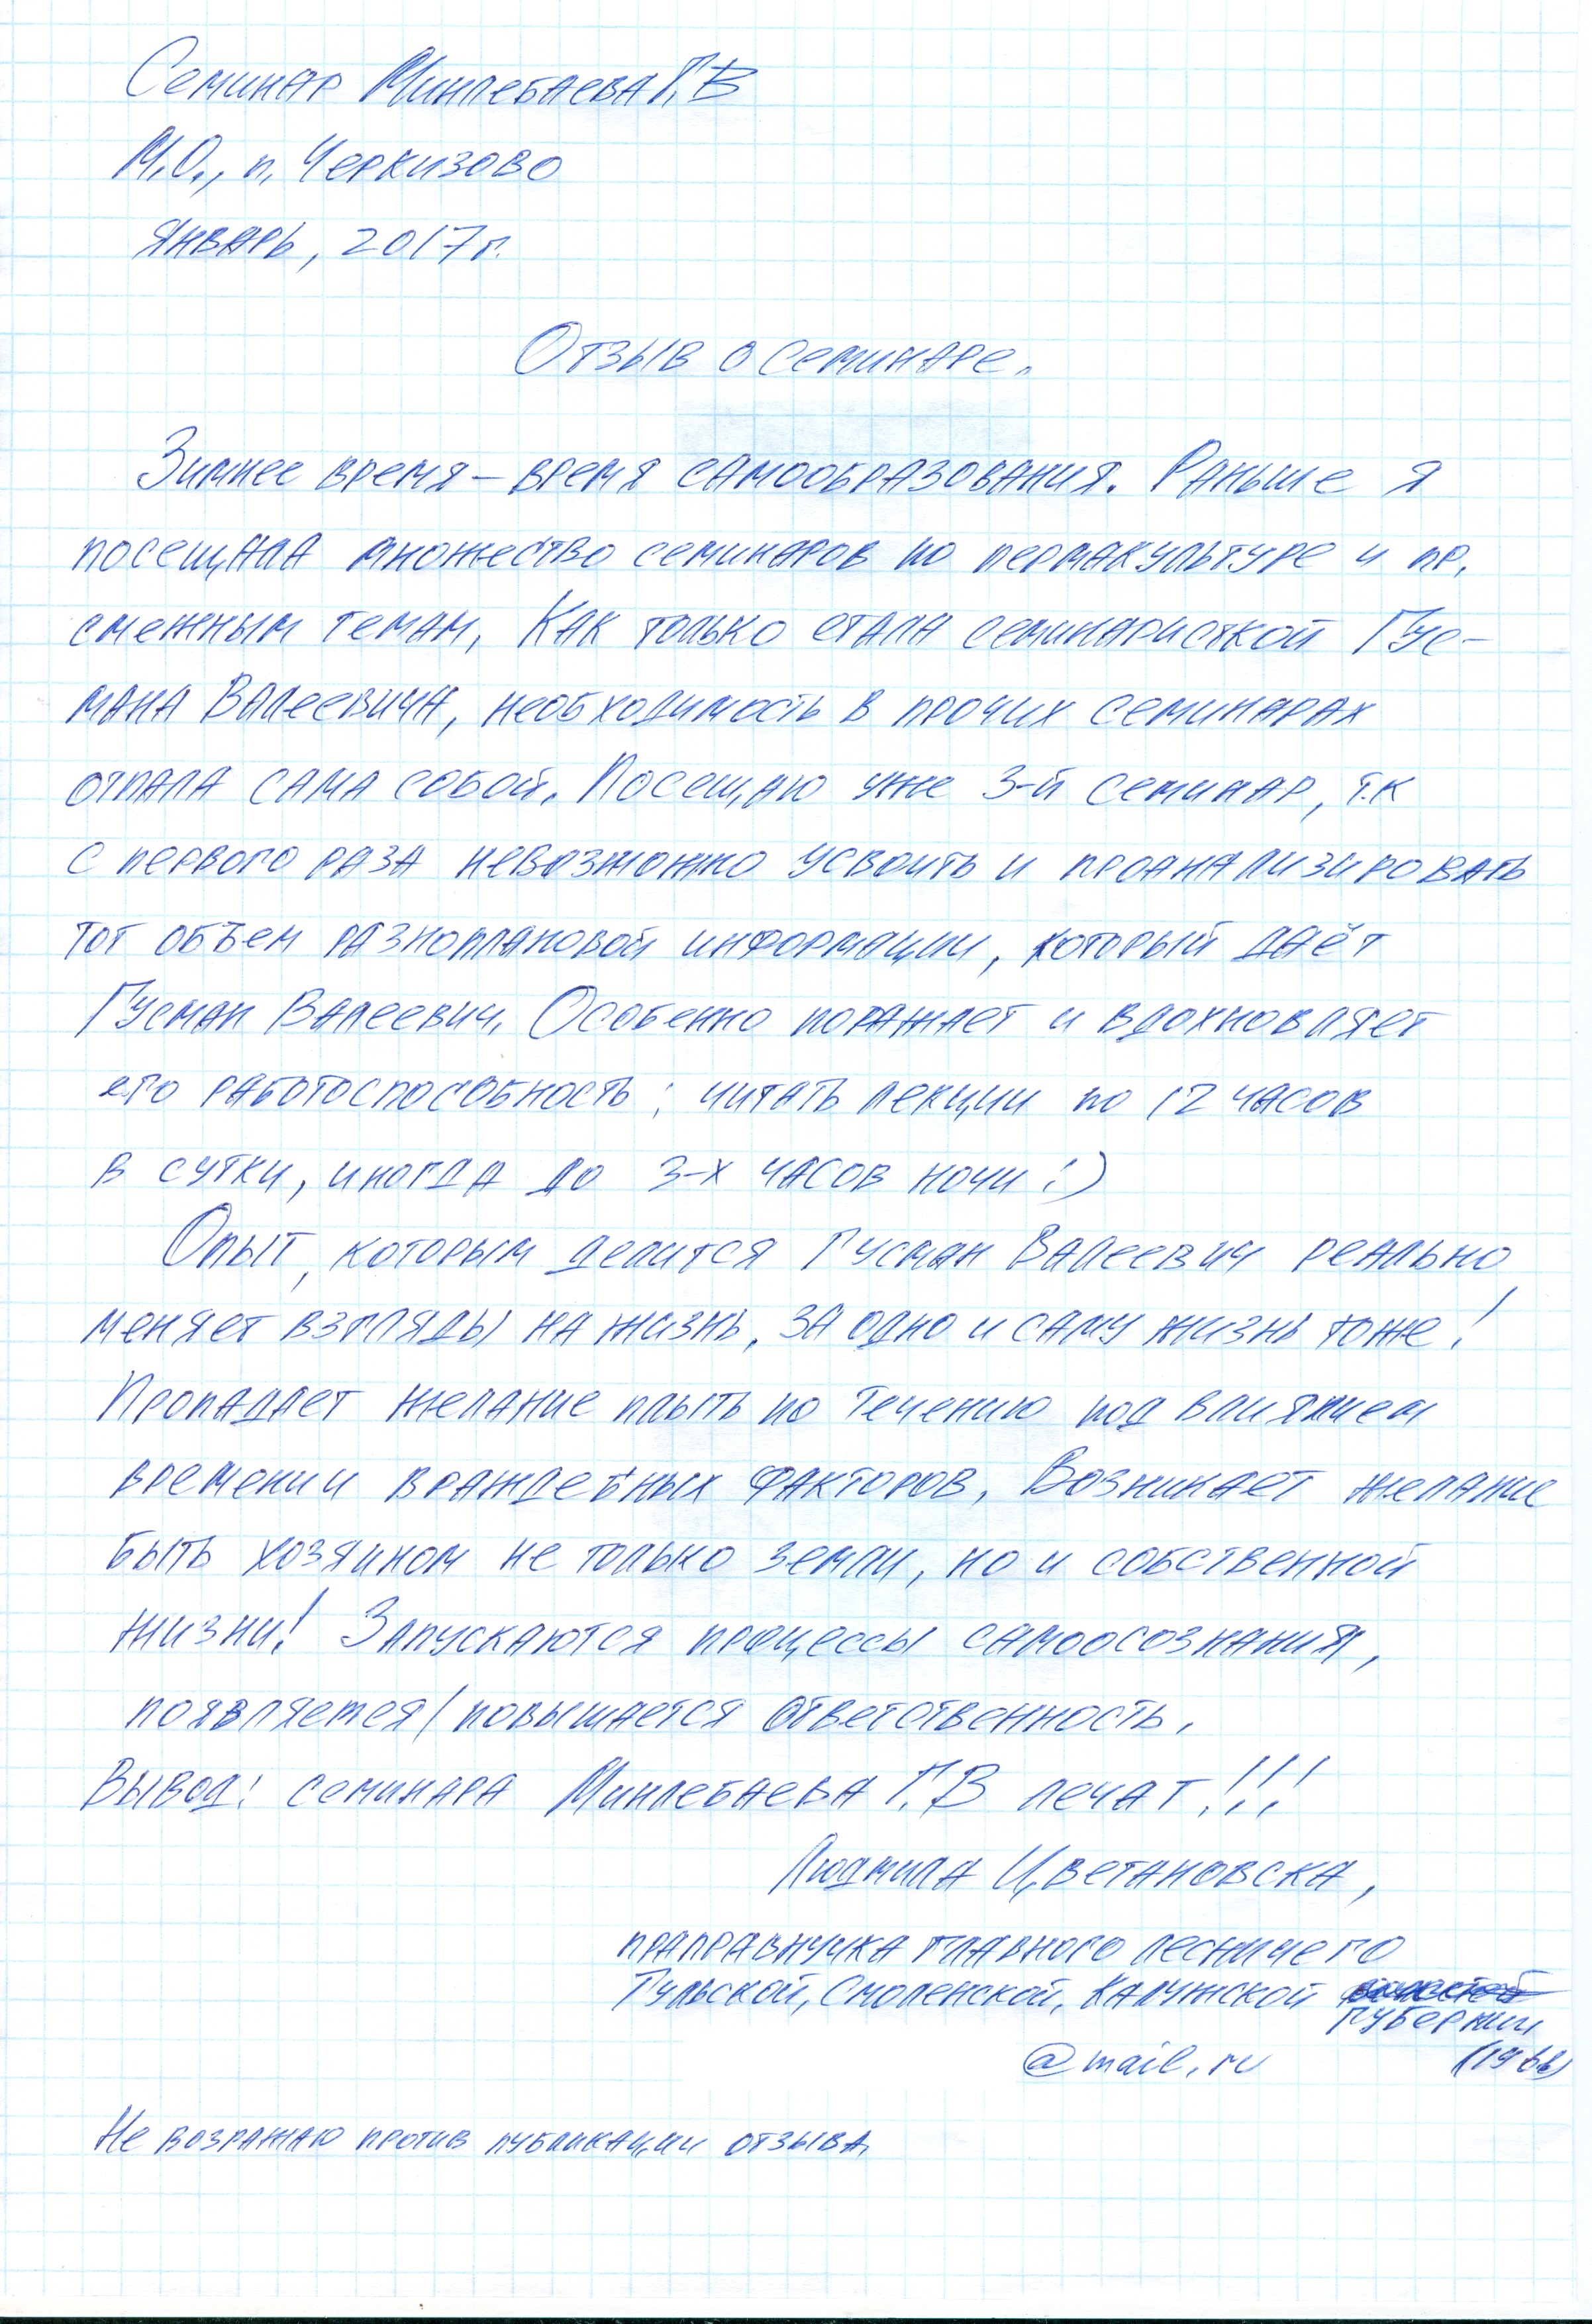 Семинар Минлебаева Г.В
М.О., п. Черкизово
Январь, 2017 г.
Отзыв о семинаре.
Зимнее время – время самообразования. Раньше я
посещала множество семинаров по пермакультуре и пр.
смежным темам. Как только стала семинаристкой Гус-
мана Валеевича, необходимость в прочих семинарах
отпала сама собой. Посещаю уже 3-й семинар, т.к
с первого раза невозможно усвоить и проанализировать
тот объем разноплановой информации, который даёт
Гусман Валеевич. Особенно поражает и вдохновляет
его работоспособность: читать лекции по 12 часов
в сутки, иногда до 3-х часов ночи :)
Опыт, которым делится Гусман Валеевич реально
меняет взгляды на жизнь, за одно и саму жизнь тоже!
Пропадает желание плыть по течению под влиянием
времени и враждебных факторов. Возникает желание
быть хозяином не только земли, но и собственной
жизни! Запускаются процессы самоосознания,
появляется/повышается ответственность.
Вывод: семинара Минлебаева Г.В лечат!!!
Людмила Цветановска,
праправнучка главного лесничего
Тульской, Смоленской, Калужской
губернии
@mail.ru
Не возражаю против публикации отзыва.